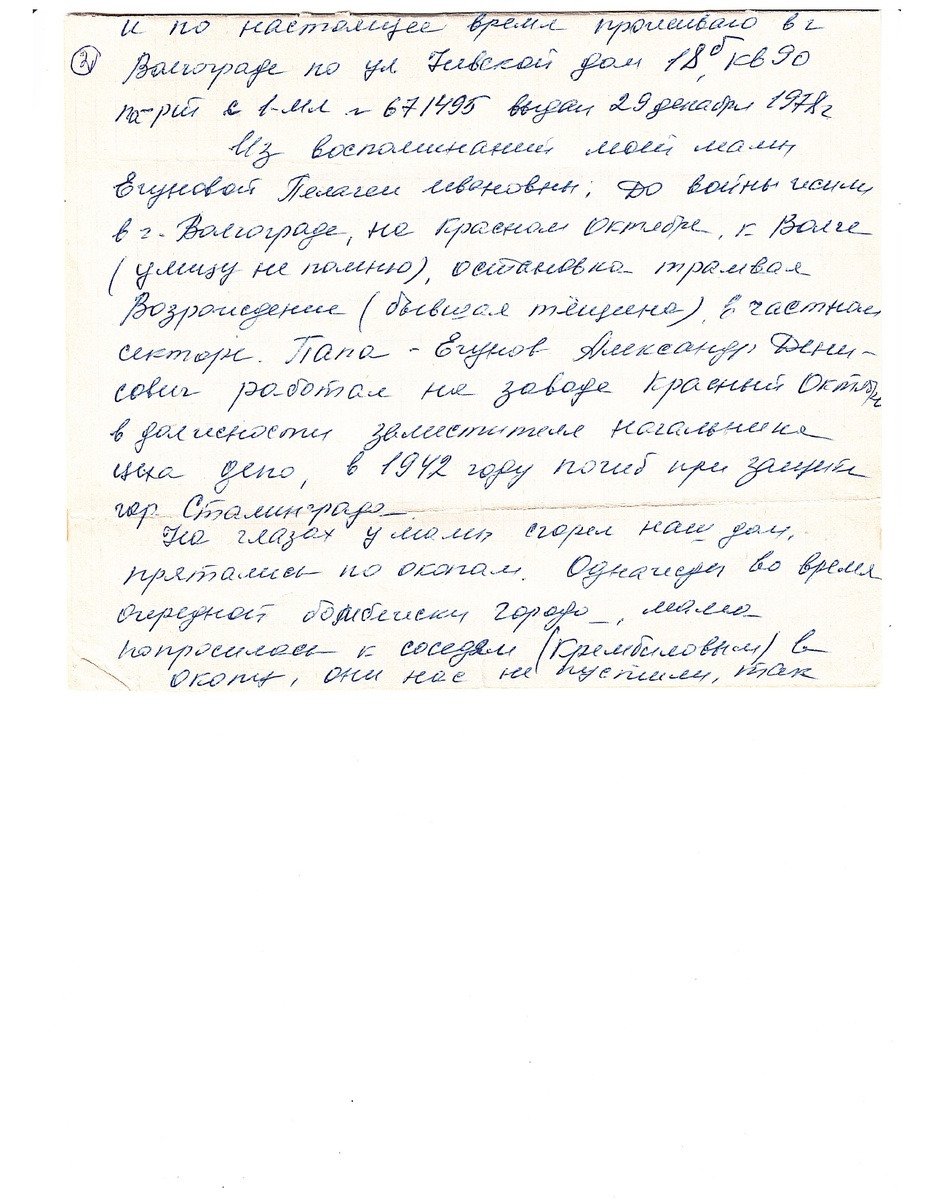 и по настоящее время проживаю в г
③ Волгограде по ул Невской дом 18б, кв 90
па-рт с 1-МЛ № 671495 выдан 29 декабря 1978г
Из воспоминаний моей мамы
Егуновой Пелагеи Ивановны: До войны жили
в г. Волгограде, на Красном Октябре, к Волге
(улицу не помню), остановка трамвая
Возрождение (бывшая тёщина), в частном
секторе. Папа - Егунов Александр Дени-
сович работал на заводе Красный Октябрь
в должности заместителя начальника
цеха депо, в 1942 году погиб при защите
гор. Сталинграда
На глазах у мамы сгорел наш дом,
прятались по окопам. Однажды во время
очередной бомбёжки города, мама
попросилась к соседям (Крембиловым) в
окопы, они нас не пустили, так